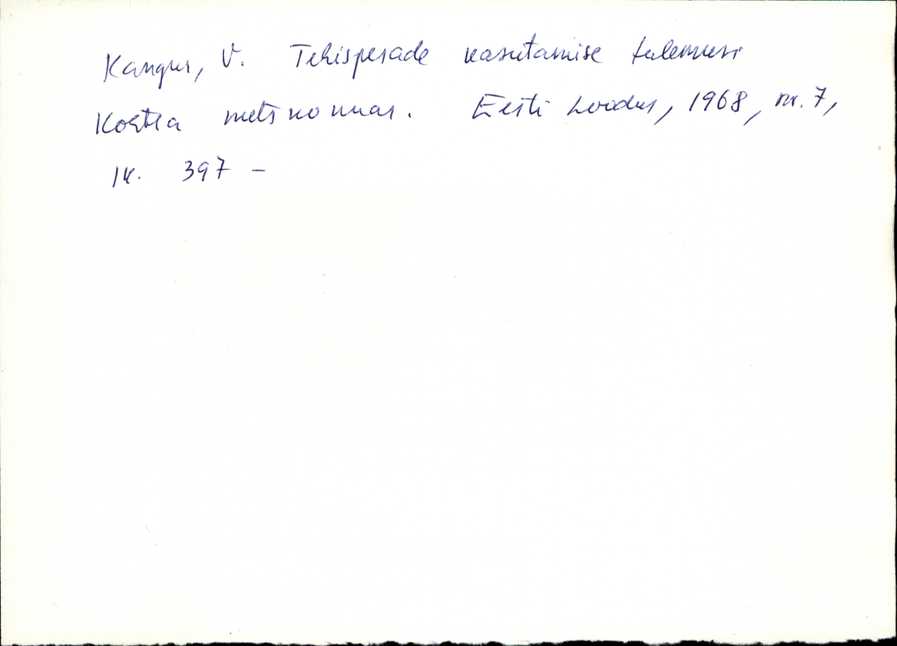 Kangur, V. Tehispesade kasutamise tulemusi
Kostla metskonnas. Eesti Loodus, 1968, nr. 7,
lk. 397 –